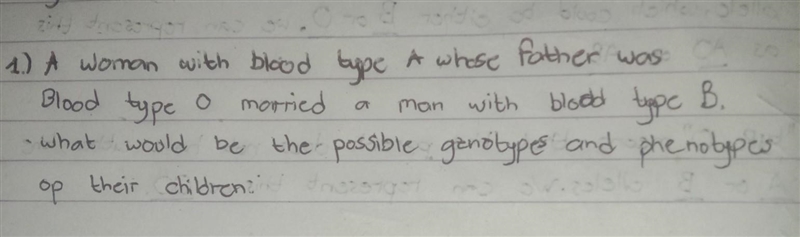 1.) A woman with blood type A whose father was
Blood type O married a man with blood type B.
what would be the possible genotypes and phenotypes
op their children: